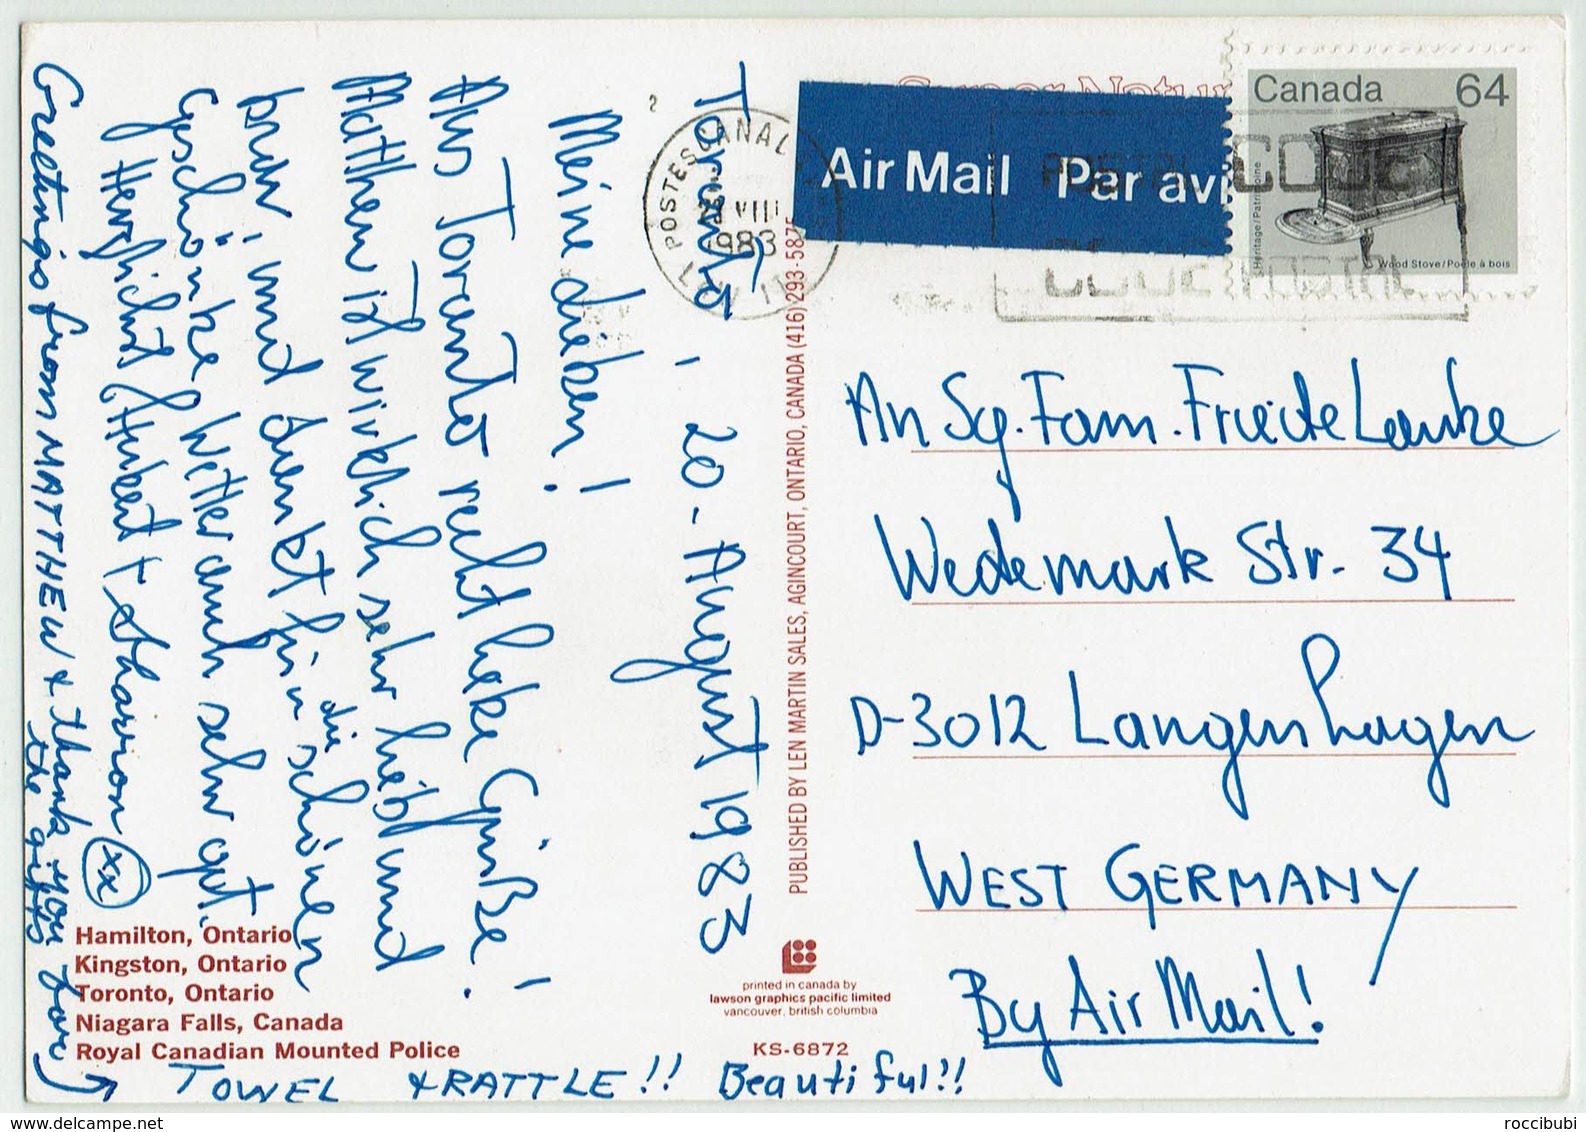 Toronto, 20. August 1983
Meine lieben!
Aus Toronto recht liebe Grüße!
Matthew ist wirklich sehr lieb und
brav, und dankt für die schönen
Geschänke. Wetter auch sehr gut.
Herzlichst Hubert + Sharron xx
Greetings from MATTHEW + thank you for
the gifts
TOWEL + RATTLE!! Beautiful!!
Hamilton, Ontario
Kingston, Ontario
Toronto, Ontario
Niagara Falls, Canada
Royal Canadian Mounted Police
PUBLISHED BY LEN MARTIN SALES, AGINCOURT, ONTARIO, CANADA (416) 293-5875
printed in canada by
lawson graphics pacific limited
vancouver, british columbia
KS-6872
POSTES CANADA
VIII
1983
Air Mail Par avi
Canada 64
Heritage/Patrimoine
Wood Stove/Poêle à bois
POSTAL CODE
CODE POSTAL
An Sg. Fam. Friede Lanke
Wedemark Str. 34
D-3012 Langenhagen
WEST GERMANY
By Air Mail!
www.delcampe.net
roccibubi